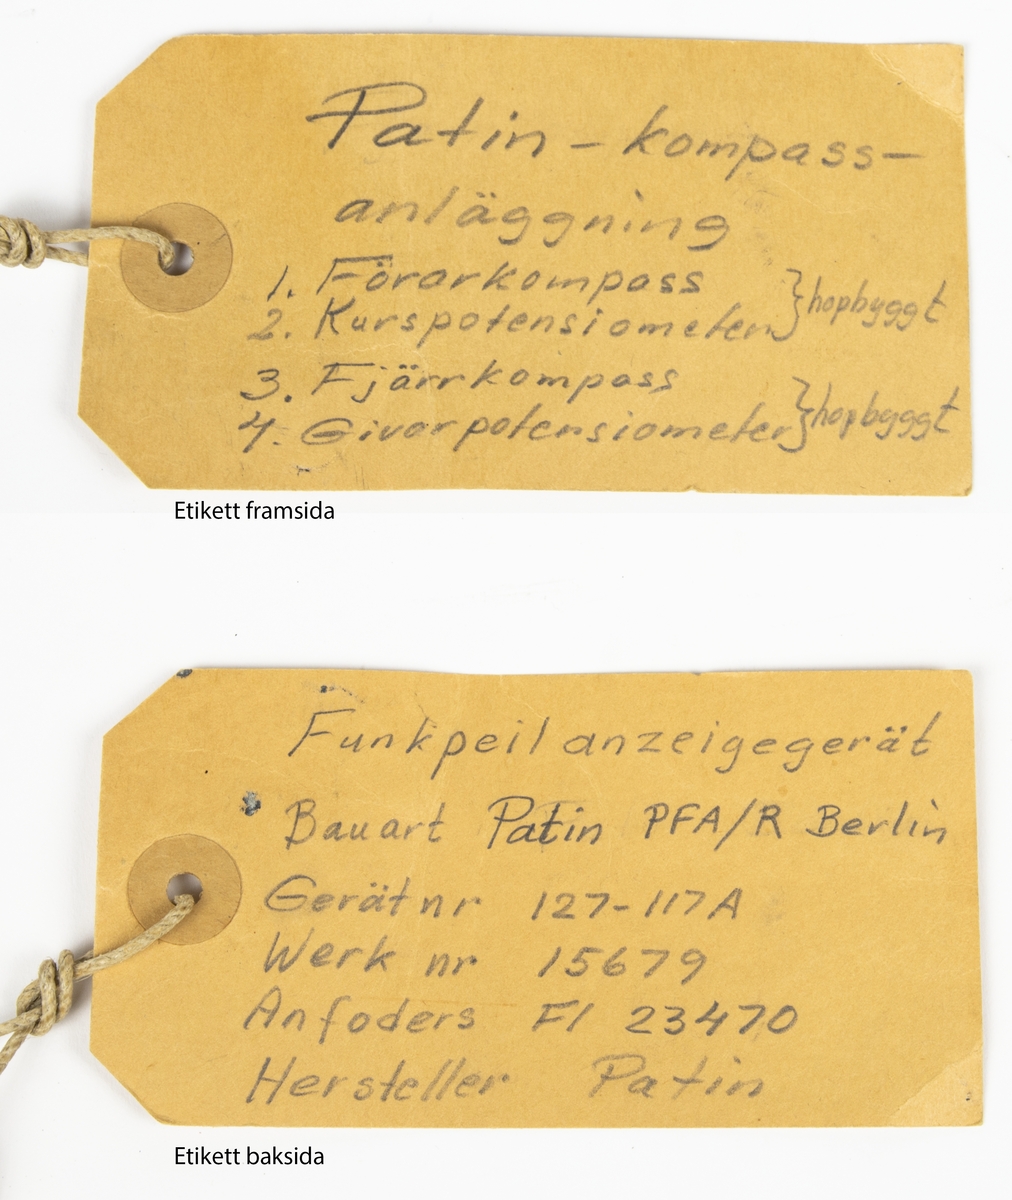 Patin - kompass-
anläggning
1. Förarkompass
2. Kurspotensiometer } hopbyggt
3. Fjärrkompass
4. Givarpotensiometer } hopbyggt
Etikett framsida
Funkpeilanzeigegerät
Bauart Patin PFA/R Berlin
Gerätnr 127-117A
Werk nr 15679
Anfoders Fl 23470
Hersteller Patin
Etikett baksida